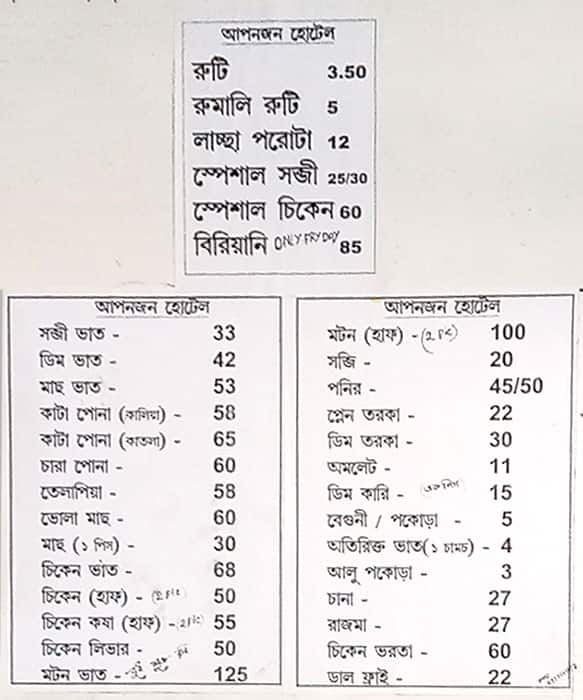 আপনজন হোটেল
রুটি 3.50
রুমালি রুটি 5
লাচ্ছা পরোটা 12
স্পেশাল সব্জী 25/30
স্পেশাল চিকেন 60
বিরিয়ানি ONLY FRYDAY 85
আপনজন হোটেল
সব্জী ভাত - 33
ডিম ভাত - 42
মাছ ভাত - 53
কাটা পোনা (কালিয়া) - 58
কাটা পোনা (কাতলা) - 65
চারা পোনা - 60
তেলাপিয়া - 58
ভোলা মাছ - 60
মাছ (১ পিস) - 30
চিকেন ভাত - 68
চিকেন (হাফ) - (2 Pic) 50
চিকেন কষা (হাফ) - (2 Pic) 55
চিকেন লিভার - 50
মটন ভাত - 125
আপনজন হোটেল
মটন (হাফ) - (2 Pc) 100
সব্জি - 20
পনির - 45/50
প্লেন তরকা - 22
ডিম তরকা - 30
অমলেট - 11
ডিম কারি - 15
বেগুনী / পকোড়া - 5
অতিরিক্ত ভাত(১ চামচ) - 4
আলু পকোড়া - 3
চানা - 27
রাজমা - 27
চিকেন ভরতা - 60
ডাল ফ্রাই - 22